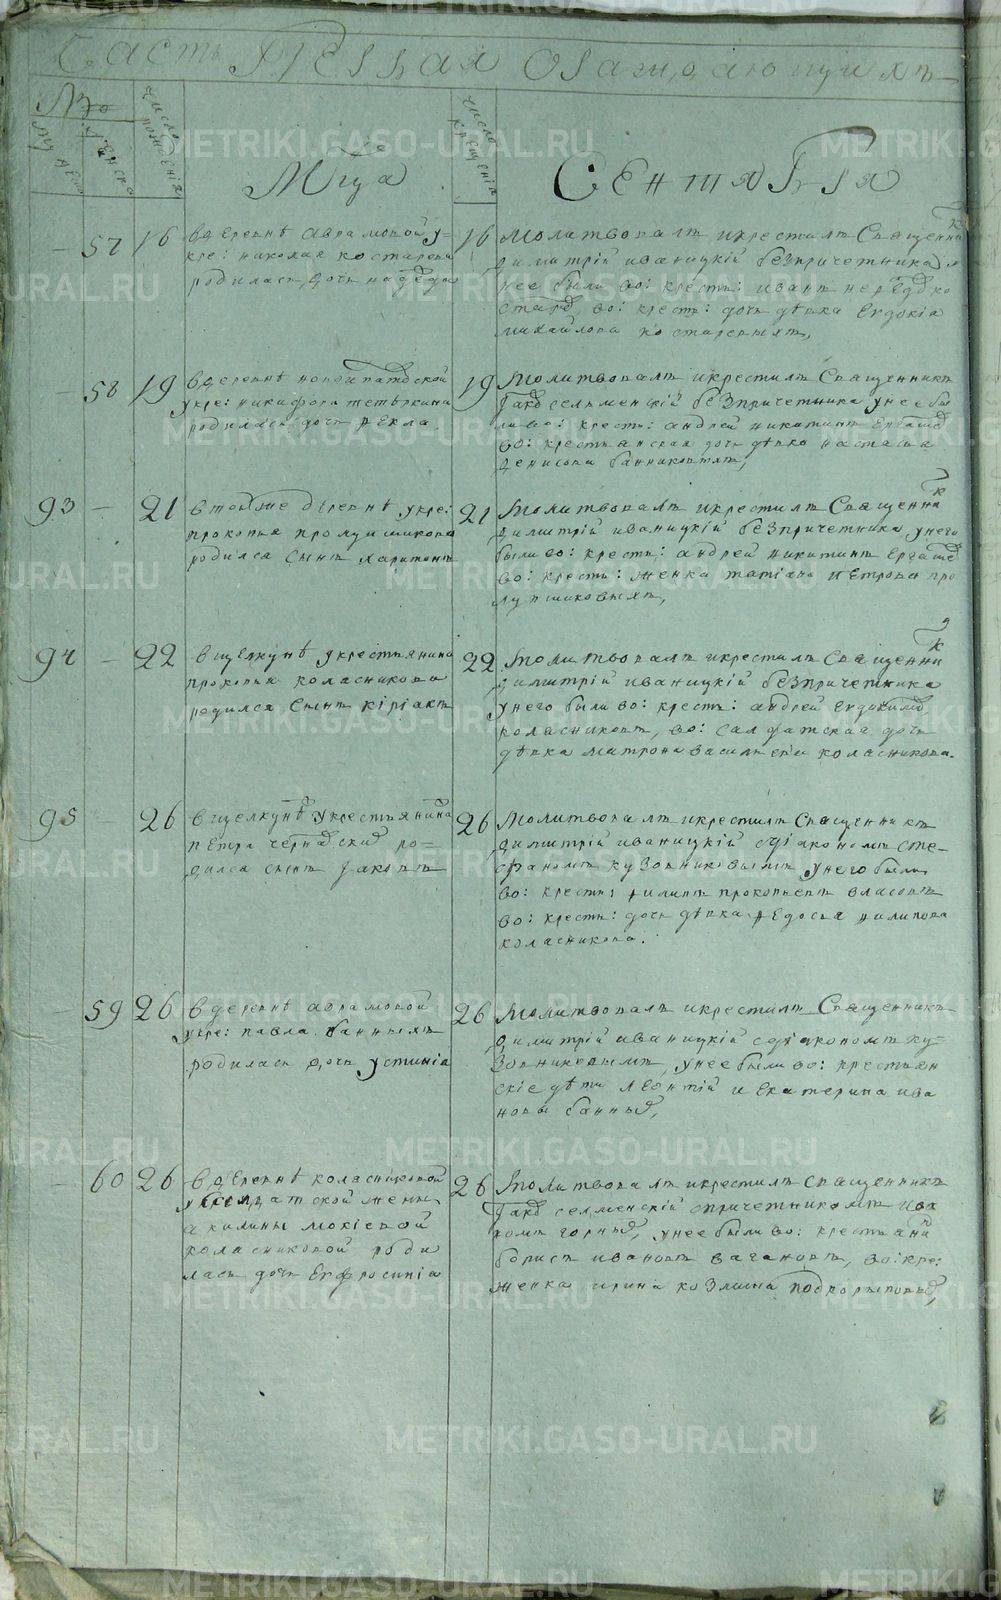 Часть Первая О раждающихся
№
мужеска
женска
число рождения
число крещения
Мца Сентября
57 16 16
в деревнѣ аврамовой у
кре: николая костарева
родилась дочь надежда
молитвовалъ и крестилъ Священникъ
димитрій иваницкій безъ причетника у
нее были во: кресть: иванъ
во: кресть: дочь дѣвка Евдокіа
михайлова костаревыхъ,
58 19 19
в деревнѣ новоипатовской
у кре: никифора тетюкина
родилась дочь Ѳекла
молитвовалъ и крестилъ Священникъ
безъ причетника у нее бы
ли во: кресть: андрей никитинъ
во: крестьянская дочь дѣвка настасья
денисова банниковыхъ,
93 21 21
в той же деревнѣ у кре:
прокопья
родился Сынъ харитонъ
молитвовалъ и крестилъ Священникъ
димитрій иваницкій безъ причетника у него
были во: кресть: андрей никитинъ
во: кресть: женка татіана Петрова
94 22 22
в щелкунѣ у крестьянина
прокопья коласникова
родился Сынъ кіріакъ
молитвовалъ и крестилъ Священникъ
димитрій иваницкій безъ причетника
у него были во: кресть: андрей Евдокимовъ
коласниковъ, во: салдатская дочь
дѣвка матрона васильева коласникова.
95 26 26
в щелкунѣ у крестьянина
петра ро-
дился сынъ Іаковъ
молитвовалъ и крестилъ Священникъ
димитрій иваницкій с діакономъ сте-
фаномъ кузовниковымъ у него были
во: кресть: филипъ прокопьевъ власовъ
во: кресть: дочь дѣвка Ѳедосья филипова
коласникова.
59 26 26
в деревнѣ аврамовой
у кре: павла банныхъ
родилась дочь устиніа
молитвовалъ и крестилъ Священникъ
димитрій иваницкій с діакономъ ку-
зовниковымъ, у нее были во: крестьян
скіе дѣти леонтій и Екатерина ива
новы банныхъ,
60 26 26
в деревнѣ коласниковой
у салдатской женки
акилины мокіевой
коласниковой роди
лась дочь Евфросиніа
молитвовалъ и крестилъ священникъ
с причетникомъ ива
номъ горныхъ, у нее были во: крестьянинъ
борисъ ивановъ вагановъ, во: кре:
женка ирина козмина подкорытовыхъ,